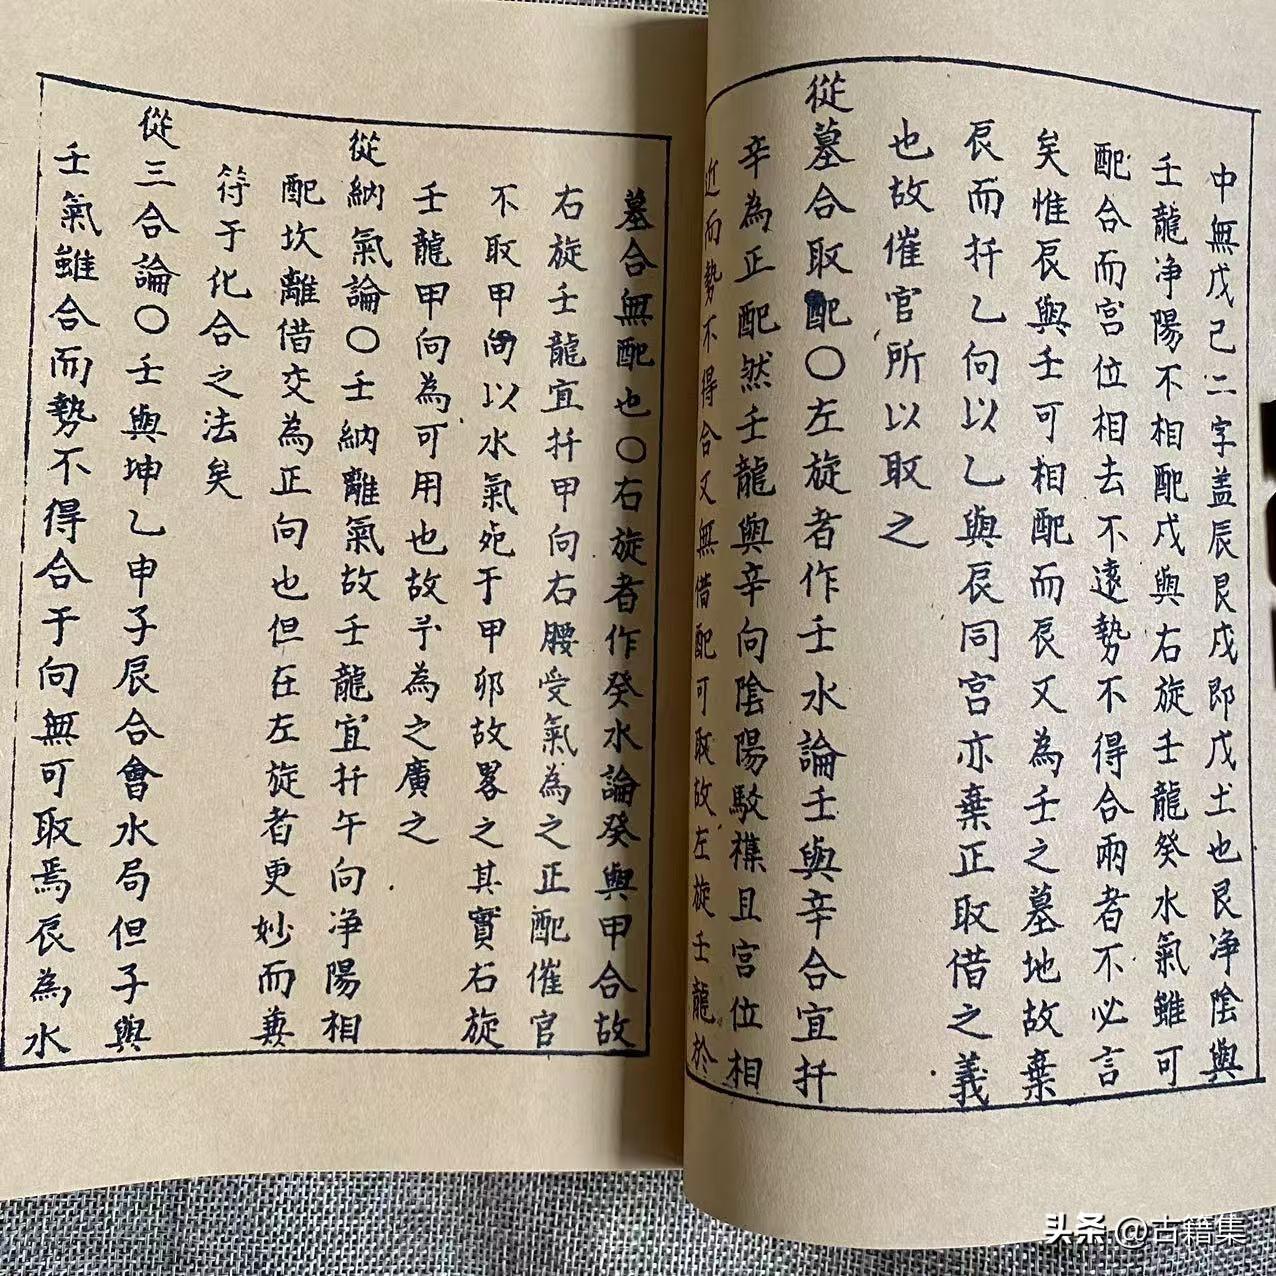 中無戊己二字蓋辰艮戌即戊土也艮净陰與
壬龍净陽不相配戌與右旋壬龍癸水氣雖可
配合而宮位相去不遠勢不得合兩者不必言
矣惟辰與壬可相配而辰又為壬之墓地故棄
辰而扦乙向以乙與辰同宮亦棄正取借之義
也故催官所以取之
從墓合取配〇左旋者作壬水論壬與辛合宜扦
辛為正配然壬龍與辛向陰陽駁襍且宮位相
近而勢不得合又無借配可取故左旋壬龍於
墓合無配也〇右旋者作癸水論癸與甲合故
右旋壬龍宜扦甲向右腰受氣為之正配催官
不取甲向以水氣死于甲卯故畧之其實右旋
壬龍甲向為可用也故予為之廣之
從納氣論〇壬納離氣故壬龍宜扦午向净陽相
配坎離借交為正向也但在左旋者更妙而兼
符于化合之法矣
從三合論〇壬與坤乙申子辰合會水局但子與
壬氣雖合而勢不得合于向無可取焉辰為水
头条 @古籍集